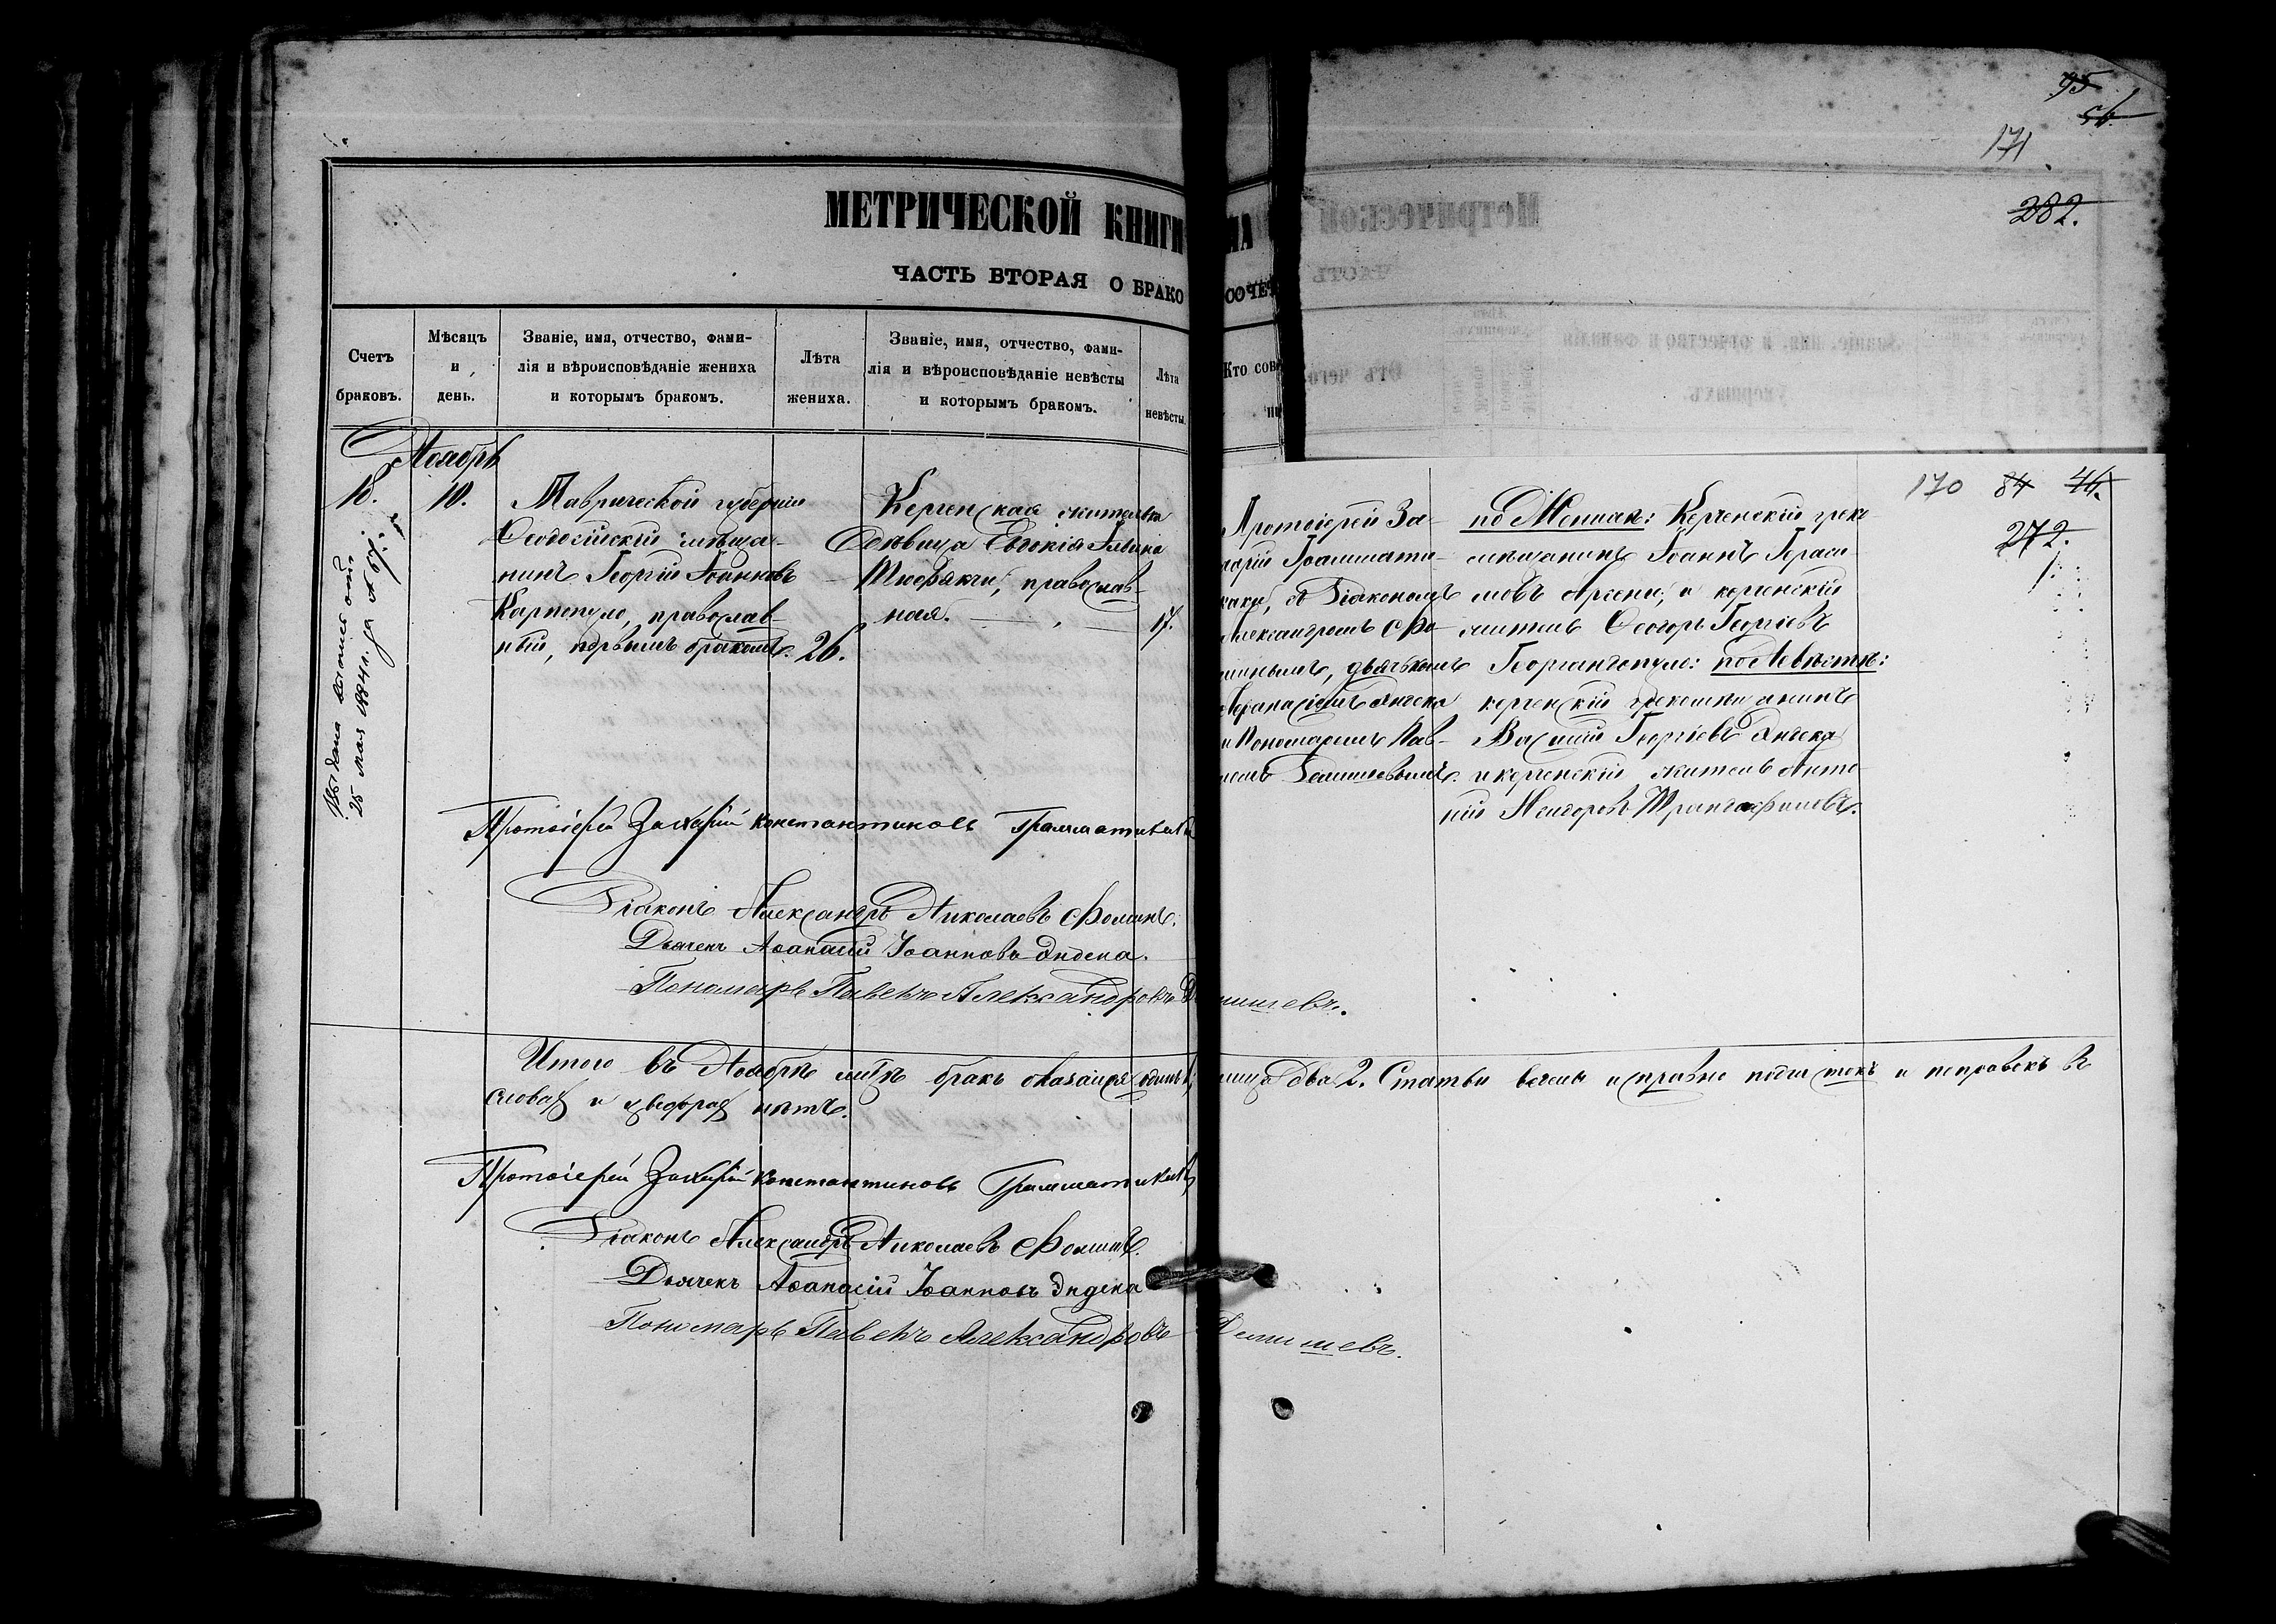 95
56.
171
282.
МЕТРИЧЕСКОЙ КНИГИ НА
ЧАСТЬ ВТОРАЯ О БРАКОСОЧЕТ
Счетъ браковъ.
Мѣсяцъ и день.
Званіе, имя, отчество, фами-
лія и вѣроисповѣданіе жениха
и которымъ бракомъ.
Лѣта жениха.
Званіе, имя, отчество, фами-
лія и вѣроисповѣданіе невѣсты
и которымъ бракомъ.
Лѣта невѣсты
Кто сов
Ноябрь
18.
10.
Таврической губерніи
Ѳеодосійскій мѣща-
нинъ Георгій Іоанновъ
Карпопуло, православ-
ный, первымъ бракомъ.
26.
Керченская жителька
Дѣвица Евдокія
православ-
ная.
17.
Протоіерей За-
харій Граммати-
каки, съ Діакономъ
Александромъ Фо-
минымъ, дьячкомъ
Аѳанасіемъ Эндека
и Пономаремъ Пав-
ломъ
по Женихѣ: Керченскій греко-
мѣщанинъ Іоаннъ Гераси-
мовъ Арсени, и керченскій
житель Ѳеодоръ Георгіевъ
Георгандопуло: по Невѣстѣ:
керченскій грекомѣщанинъ
Василій Георгіевъ Эндека
и керченскій житель Анто-
ній
170 84 46.
272.
25 мая 1884 г. за № 67
Протоіерей Захарій Константиновъ Грамматикаки
Діаконъ Александръ Николаевъ Фоминъ.
Дьячекъ Аѳанасій Іоанновъ Эндека.
Пономарь Павелъ Александровъ
Итого въ Ноябрѣ м-цѣ бракъ оказался одинъ 1, лица два 2. Статьи вѣрны и справны подчистокъ и поправокъ въ
словахъ и цифрахъ нѣтъ.
Протоіерей Захарій Константиновъ Грамматикаки
Діаконъ Александръ Николаевъ Фоминъ.
Дьячекъ Аѳанасій Іоанновъ Эндека
Пономарь Павелъ Александровъ